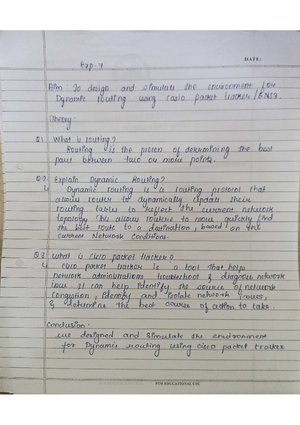 DATE:
Exp-7
Aim To design and simulate the environment for
Dynamic routing using cisco packet tracker / GNS3.
Theory
Q1. What is routing?
Routing is the process of determining the best
path between two or more points.
Q2. Explain Dynamic Routing?
Dynamic routing is a routing protocol that
allows router to dynamically update their
routing tables to reflect the current network
topology This allow routers to more quickly find
the best route to a destination, based on the
current Network Conditions.
Q3 What is Cisco packet tracker?
Cisco packet tracker is a tool that helps
network administrations troubleshoot & diagnose network
issues. It can help identify the source of network
congestion, identify and isolate network issues,
& determine the best course of action to take.
Conclusion:
We designed and simulate the environment
for Dynamic routing using Cisco packet tracker
FOR EDUCATIONAL USE